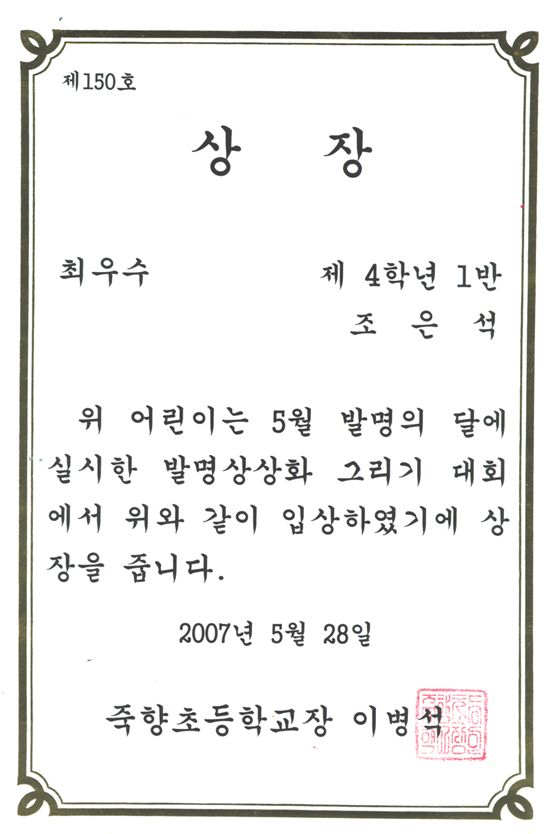 제150호
상 장
최우수
제 4학년 1반
조 은 석
위 어린이는 5월 발명의 달에
실시한 발명상상화 그리기 대회
에서 위와 같이 입상하였기에 상
장을 줍니다.
2007년 5월 28일
죽향초등학교장 이병석